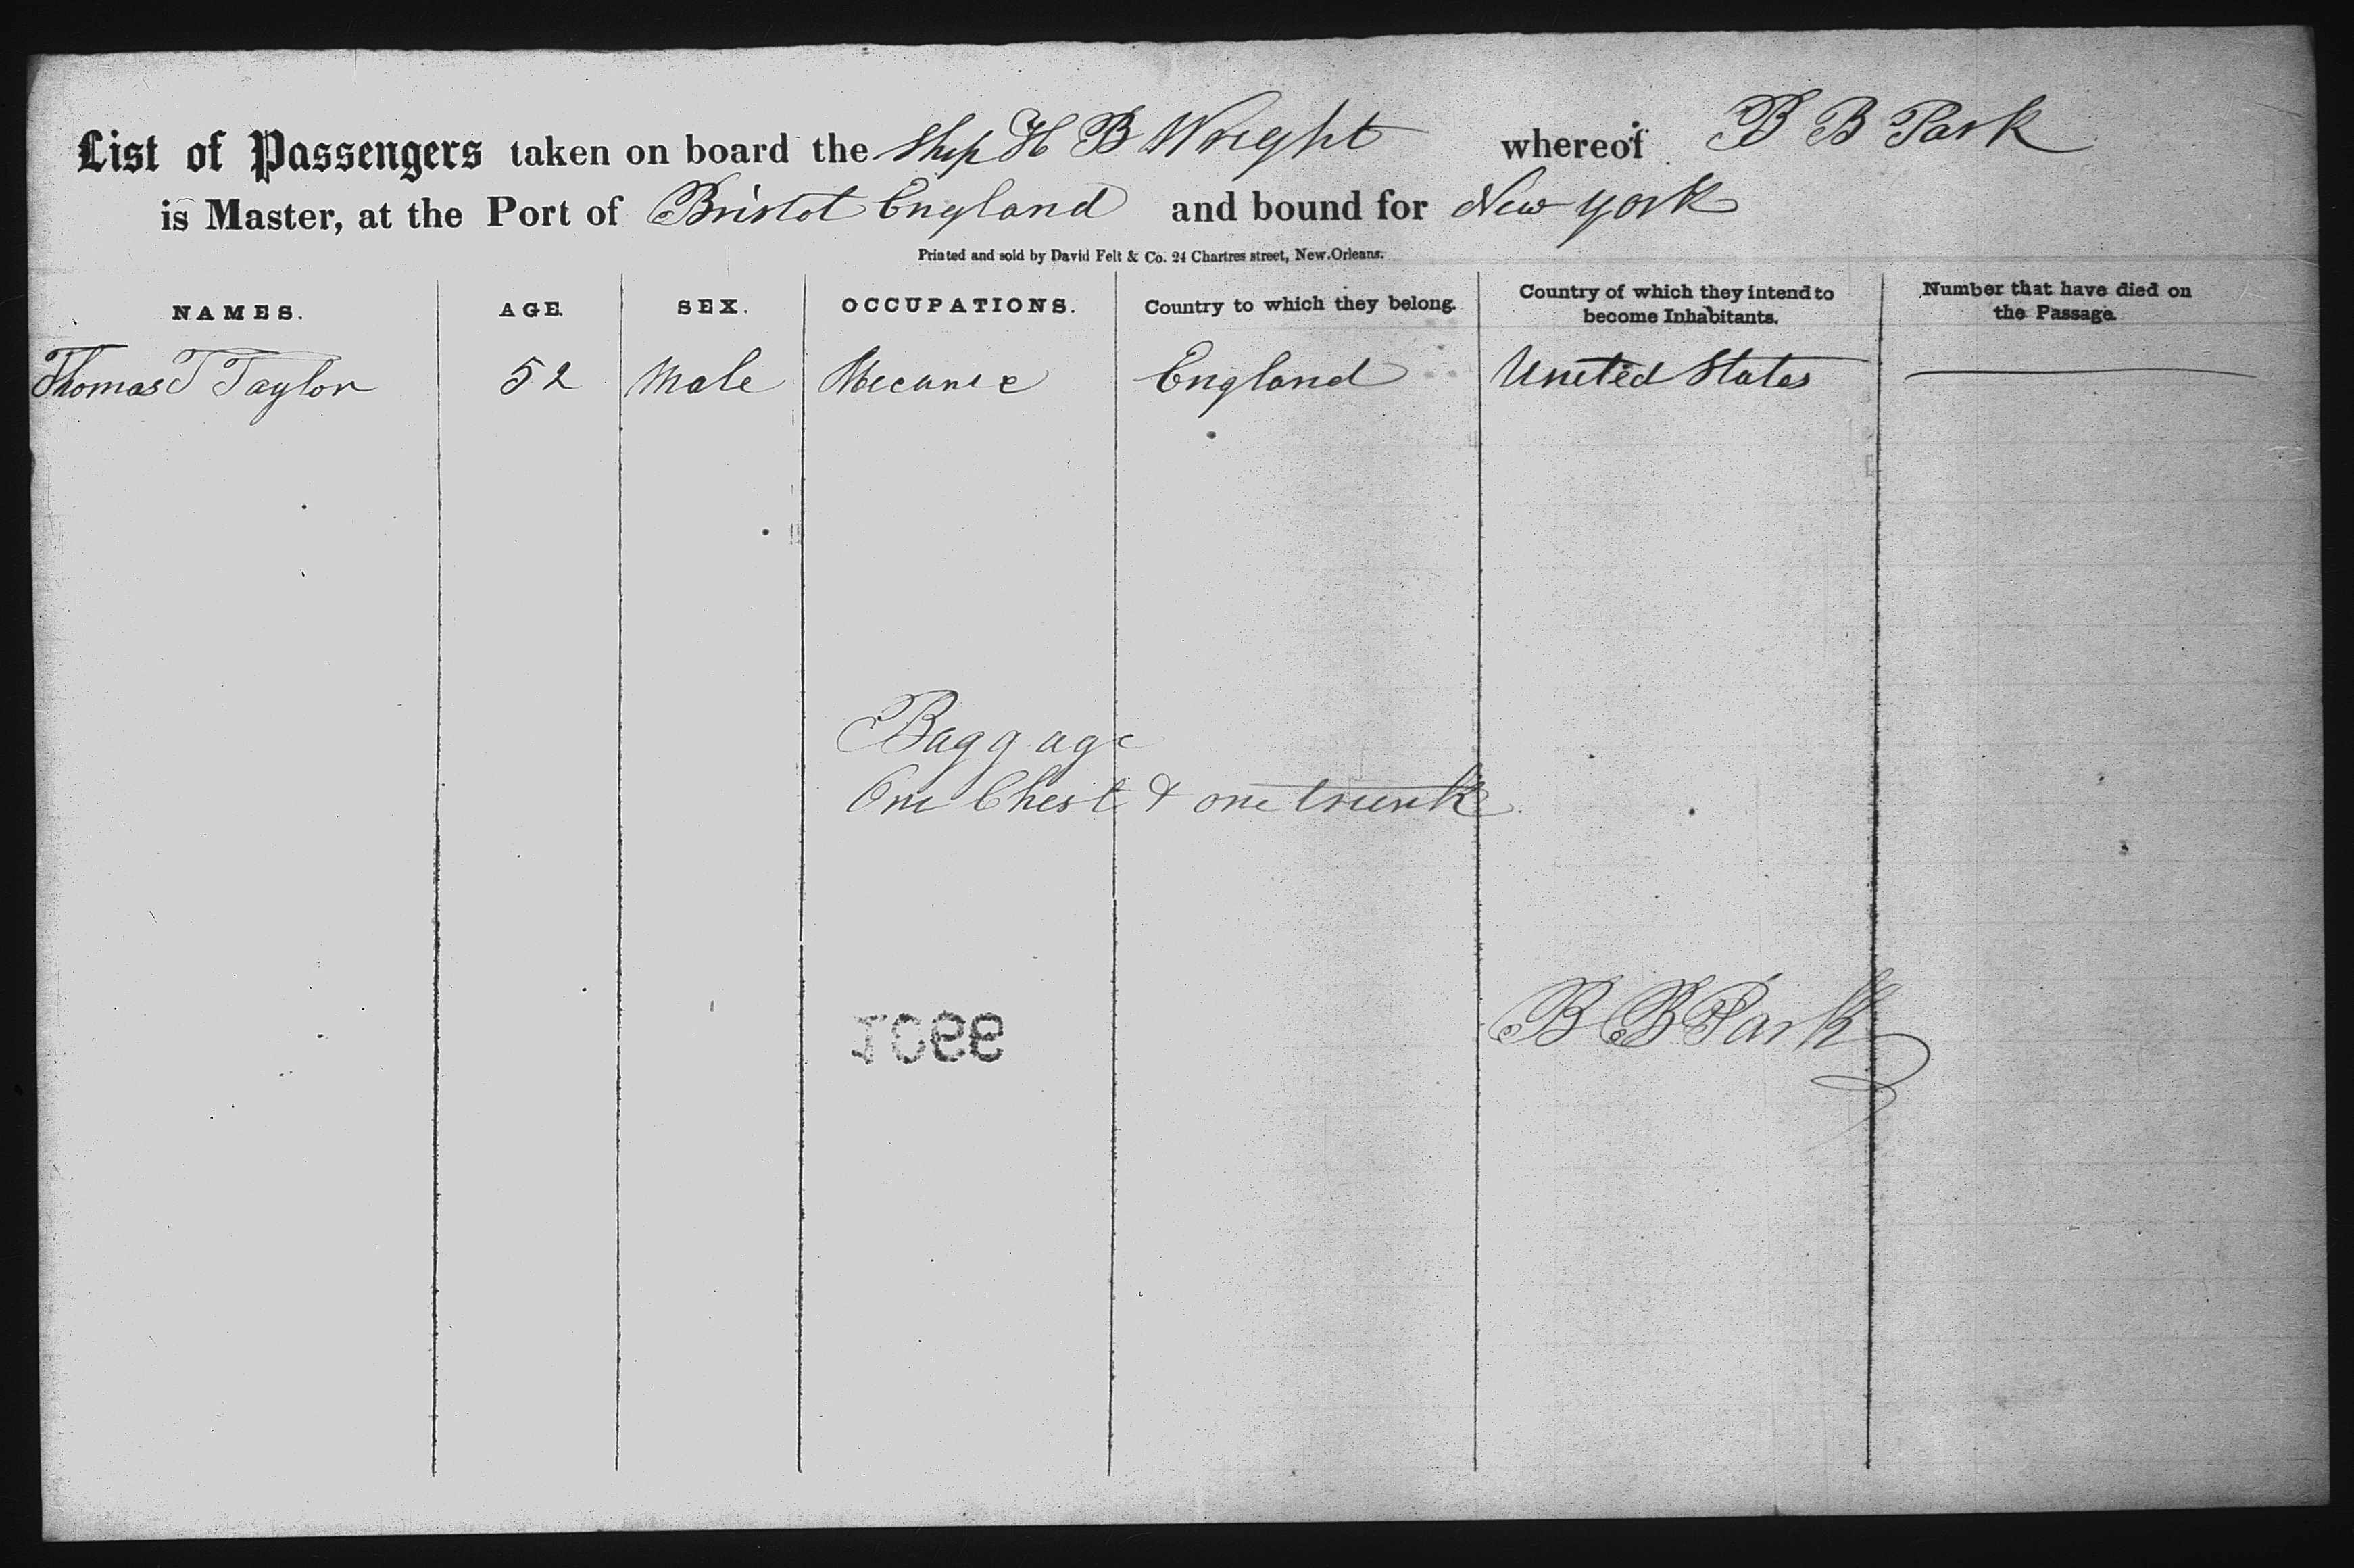 List of Passengers taken on board the Ship H B Wright whereof B B Park
is Master, at the Port of Bristol England and bound for New York
Printed and sold by David Felt & Co. 24 Chartres street, New.Orleans.
NAMES. AGE SEX. OCCUPATIONS. Country to which they belong. Country of which they intend to become Inhabitants. Number that have died on the Passage.
Thomas T Taylor 52 Male Mecanic England United States
Baggage
One Chest & one trunk
B B Park